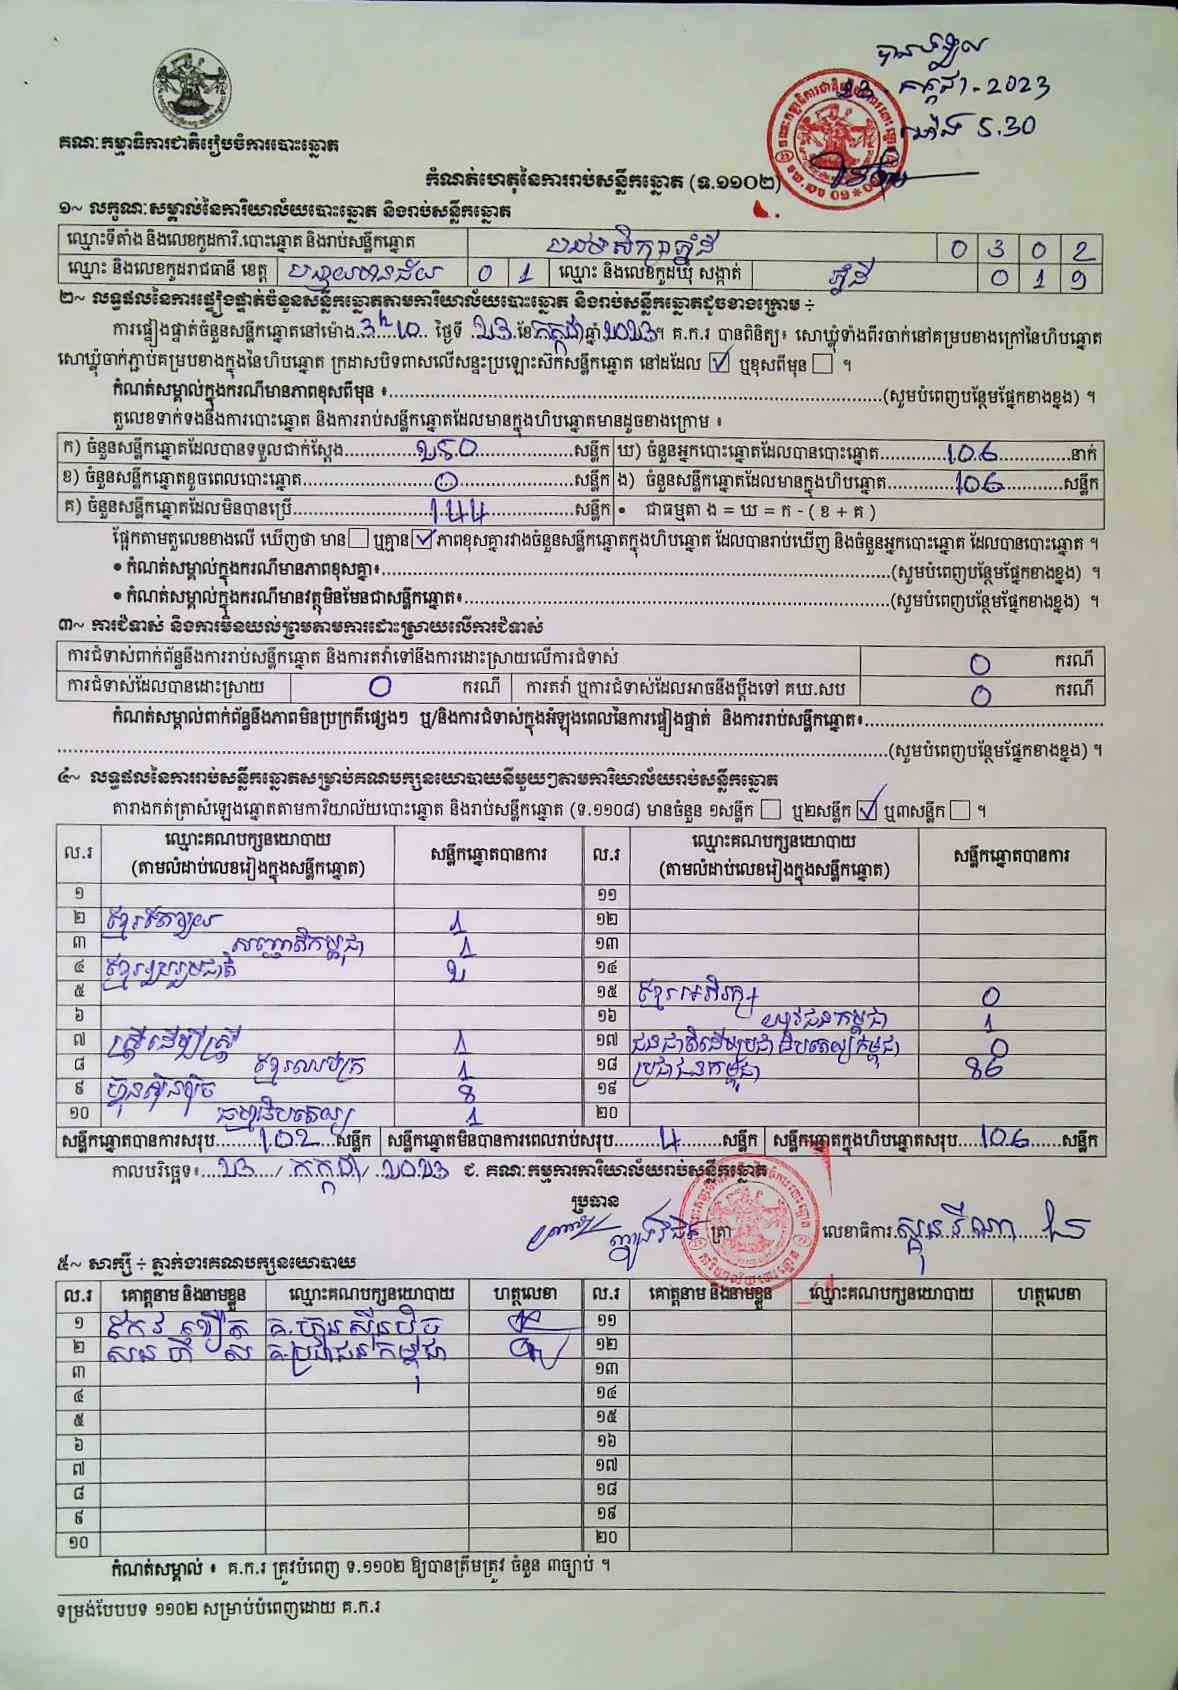 បានទទួល
23 កក្កដា - 2023
ម៉ោង 5.30
គណៈកម្មាធិការជាតិរៀបចំការបោះឆ្នោត
កំណត់ហេតុនៃការរាប់សន្លឹកឆ្នោត (ទ.១១០២)
១~ លក្ខណៈសម្គាល់នៃការិយាល័យបោះឆ្នោត និងរាប់សន្លឹកឆ្នោត
ឈ្មោះទីតាំង និងលេខកូដការិ.បោះឆ្នោត និងរាប់សន្លឹកឆ្នោត 0 3 0 2
ឈ្មោះ និងលេខកូដរាជធានី ខេត្ត បន្ទាយមានជ័យ 0 1 ឈ្មោះ និងលេខកូដឃុំ សង្កាត់ 0 1 9
២~ លទ្ធផលនៃការផ្ទៀងផ្ទាត់ចំនួនសន្លឹកឆ្នោតតាមការិយាល័យបោះឆ្នោត និងរាប់សន្លឹកឆ្នោតដូចខាងក្រោម ÷
ការផ្ទៀងផ្ទាត់ចំនួនសន្លឹកឆ្នោតនៅម៉ោង 3h 10 ថ្ងៃទី 23 ខែ កក្កដា ឆ្នាំ 2023 ។ គ.ក.រ បានពិនិត្យ៖ សោឃ្លុំទាំងពីរចាក់នៅគម្របខាងក្រៅនៃហិបឆ្នោត
សោឃ្លុំចាក់ភ្ជាប់គម្របខាងក្នុងនៃហិបឆ្នោត ក្រដាសបិទពាសលើសន្ទះប្រឡោះស៊កសន្លឹកឆ្នោត នៅដដែល ☑ ឬខុសពីមុន ☐ ។
កំណត់សម្គាល់ក្នុងករណីមានភាពខុសពីមុន ៖ (សូមបំពេញបន្ថែមផ្នែកខាងខ្នង) ។
តួលេខទាក់ទងនឹងការបោះឆ្នោត និងការរាប់សន្លឹកឆ្នោតដែលមានក្នុងហិបឆ្នោតមានដូចខាងក្រោម ៖
ក) ចំនួនសន្លឹកឆ្នោតដែលបានទទួលជាក់ស្តែង 250 សន្លឹក ឃ) ចំនួនអ្នកបោះឆ្នោតដែលបានបោះឆ្នោត 106 នាក់
ខ) ចំនួនសន្លឹកឆ្នោតខូចពេលបោះឆ្នោត 0 សន្លឹក ង) ចំនួនសន្លឹកឆ្នោតដែលមានក្នុងហិបឆ្នោត 106 សន្លឹក
គ) ចំនួនសន្លឹកឆ្នោតដែលមិនបានប្រើ 144 សន្លឹក • ជាធម្មតា ង = ឃ = ក - ( ខ + គ )
ផ្អែកតាមតួលេខខាងលើ ឃើញថា មាន ☐ ឬគ្មាន ☑ ភាពខុសគ្នារវាងចំនួនសន្លឹកឆ្នោតក្នុងហិបឆ្នោត ដែលបានរាប់ឃើញ និងចំនួនអ្នកបោះឆ្នោត ដែលបានបោះឆ្នោត ។
• កំណត់សម្គាល់ក្នុងករណីមានភាពខុសគ្នា៖ (សូមបំពេញបន្ថែមផ្នែកខាងខ្នង) ។
• កំណត់សម្គាល់ក្នុងករណីមានវត្ថុមិនមែនជាសន្លឹកឆ្នោត៖ (សូមបំពេញបន្ថែមផ្នែកខាងខ្នង) ។
៣~ ការជំទាស់ និងការមិនយល់ព្រមតាមការដោះស្រាយលើការជំទាស់
ការជំទាស់ពាក់ព័ន្ធនឹងការរាប់សន្លឹកឆ្នោត និងការតវ៉ាទៅនឹងការដោះស្រាយលើការជំទាស់ 0 ករណី
ការជំទាស់ដែលបានដោះស្រាយ 0 ករណី ការតវ៉ា ឬការជំទាស់ដែលអាចនឹងប្តឹងទៅ គឃ.សប 0 ករណី
កំណត់សម្គាល់ពាក់ព័ន្ធនឹងភាពមិនប្រក្រតីផ្សេងៗ ឬ/និងការជំទាស់ក្នុងអំឡុងពេលនៃការផ្ទៀងផ្ទាត់ និងការរាប់សន្លឹកឆ្នោត៖
(សូមបំពេញបន្ថែមផ្នែកខាងខ្នង) ។
៤~ លទ្ធផលនៃការរាប់សន្លឹកឆ្នោតសម្រាប់គណបក្សនយោបាយនីមួយៗតាមការិយាល័យរាប់សន្លឹកឆ្នោត
តារាងកត់ត្រាសំឡេងឆ្នោតតាមការិយាល័យបោះឆ្នោត និងរាប់សន្លឹកឆ្នោត (ទ.១១០៨) មានចំនួន ១សន្លឹក ☐ ឬ២សន្លឹក ☑ ឬ៣សន្លឹក ☐ ។
ល.រ ឈ្មោះគណបក្សនយោបាយ (តាមលំដាប់លេខរៀងក្នុងសន្លឹកឆ្នោត) សន្លឹកឆ្នោតបានការ ល.រ ឈ្មោះគណបក្សនយោបាយ (តាមលំដាប់លេខរៀងក្នុងសន្លឹកឆ្នោត) សន្លឹកឆ្នោតបានការ
១ ១១
២ 1 ១២
៣ សញ្ជាតិកម្ពុជា 1 ១៣
៤ ខ្មែររួបរួមជាតិ 2 ១៤
៥ ១៥ ខ្មែរអភិរក្ស 0
៦ ១៦ យុវជនកម្ពុជា 1
៧ ស្ត្រីដើម្បីស្ត្រី 1 ១៧ ជនជាតិដើមប្រជាធិបតេយ្យកម្ពុជា 0
៨ ខ្មែរឈប់ក្រ 1 ១៨ ប្រជាជនកម្ពុជា 86
៩ ហ៊្វុនស៊ិនប៉ិច 8 ១៩
១០ ធម្មាធិបតេយ្យ 1 ២០
សន្លឹកឆ្នោតបានការសរុប 102 សន្លឹក សន្លឹកឆ្នោតមិនបានការពេលរាប់សរុប 4 សន្លឹក សន្លឹកឆ្នោតក្នុងហិបឆ្នោតសរុប 106 សន្លឹក
កាលបរិច្ឆេទ៖ 23 / កក្កដា / 2023 ជ. គណៈកម្មការការិយាល័យរាប់សន្លឹកឆ្នោត
ប្រធាន
ត្រា លេខាធិការ
៥~ សាក្សី ÷ ភ្នាក់ងារគណបក្សនយោបាយ
ល.រ គោត្តនាម និងនាមខ្លួន ឈ្មោះគណបក្សនយោបាយ ហត្ថលេខា ល.រ គោត្តនាម និងនាមខ្លួន ឈ្មោះគណបក្សនយោបាយ ហត្ថលេខា
១ គ.ហ៊្វុនស៊ិនប៉ិច ១១
២ គ.ប្រជាជនកម្ពុជា ១២
៣ ១៣
៤ ១៤
៥ ១៥
៦ ១៦
៧ ១៧
៨ ១៨
៩ ១៩
១០ ២០
កំណត់សម្គាល់ ៖ គ.ក.រ ត្រូវបំពេញ ទ.១១០២ ឱ្យបានត្រឹមត្រូវ ចំនួន ៣ច្បាប់ ។
ទម្រង់បែបបទ ១១០២ សម្រាប់បំពេញដោយ គ.ក.រ